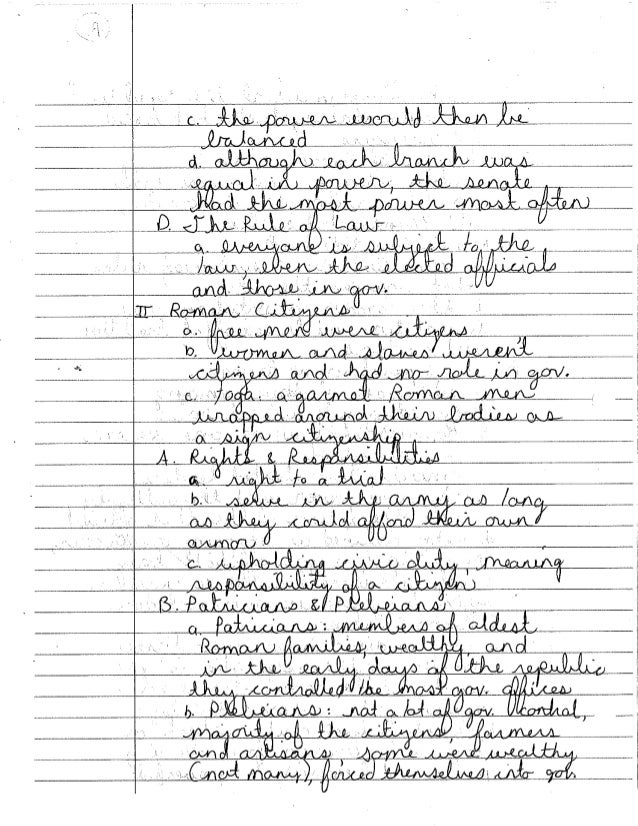 A
c. the power would then be
balanced
d. although each branch was
equal in power, the senate
had the most power most often
D. The Rule of Law
a. everyone is subject to the
law, even the elected officials
and those in gov.
II Roman Citizens
a. free men were citizens
b. women and slaves weren't
citizens and had no role in gov.
c. toga: a garmet Roman men
wrapped around their bodies as
a sign citizenship
A. Rights & Responsibilities
a. right to a trial
b. serve in the army as long
as they could afford their own
armor
c. upholding civic duty, meaning
responsibility of a citizen
B. Patricians & Plebeians
a. Patricians: members of oldest
Roman families, wealthy, and
in the early days of the republic
they controlled the most gov. offices
b. Plebeians: not a lot of gov. control,
majority of the citizens, farmers
and artisans, some were wealthy
(not many), forced themselves into gov.